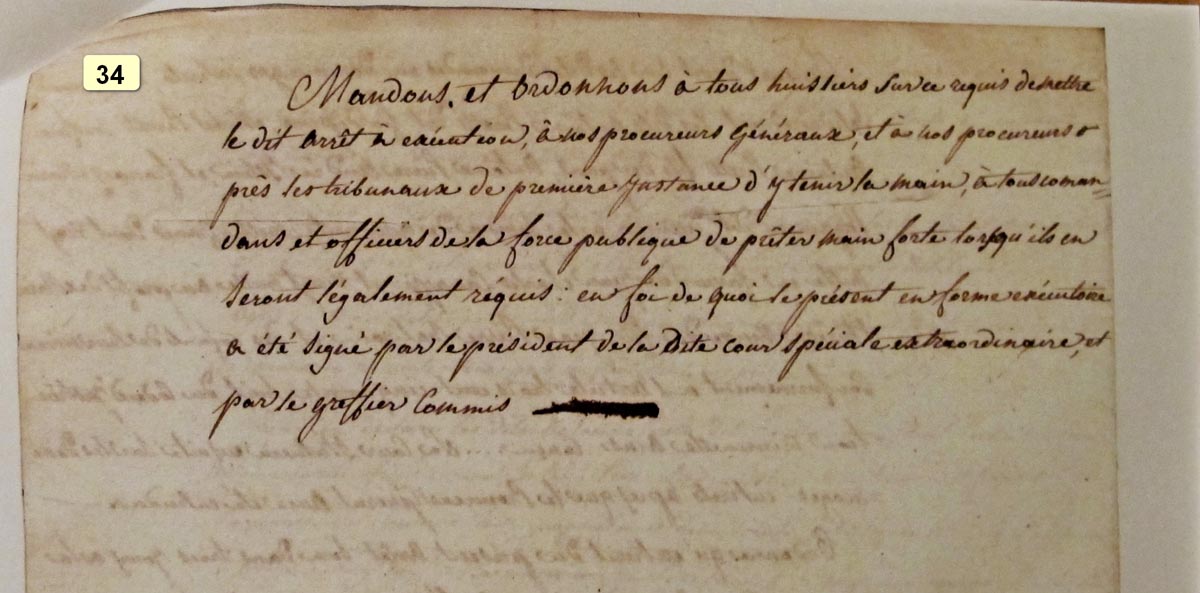 34
Mandons, et Ordonnons à tous huissiers sur ce requis de mettre
le dit arrêt à exécution, à nos procureurs Généraux, et à nos procureurs
près les tribunaux de première Instance d'y tenir la main, à tous coman=
dans et officiers de la force publique de prêter main forte lorsqu'ils en
seront légalement réquis : en foi de quoi le présent en forme exécutoire
a été signé par le président de la Dite cour spéciale extraordinaire, et
par le greffier Commis